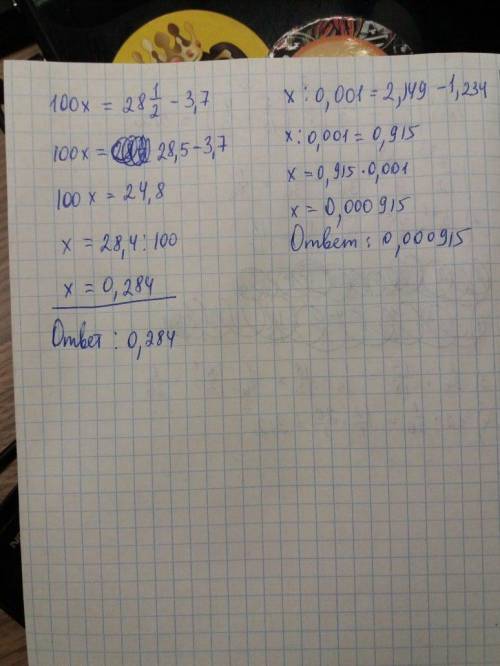 100x = 28 1/2 − 3,7
100x = 28,5 − 3,7
100x = 24,8
x = 28,4 : 100
x = 0,284
Ответ : 0,284
x : 0,001 = 2,149 − 1,234
x : 0,001 = 0,915
x = 0,915 · 0,001
x = 0,000915
Ответ : 0,000915